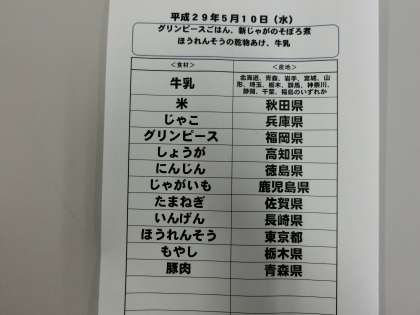 平成29年5月10日（水）
グリンピースごはん、新じゃがのそぼろ煮
ほうれんそうの乾物あけ、牛乳
＜食材＞ ＜産地＞
牛乳 北海道、青森、岩手、宮城、山
形、埼玉、栃木、群馬、神奈川、
静岡、千葉、福島のいずれか
米 秋田県
じゃこ 兵庫県
グリンピース 福岡県
しょうが 高知県
にんじん 徳島県
じゃがいも 鹿児島県
たまねぎ 佐賀県
いんげん 長崎県
ほうれんそう 東京都
もやし 栃木県
豚肉 青森県